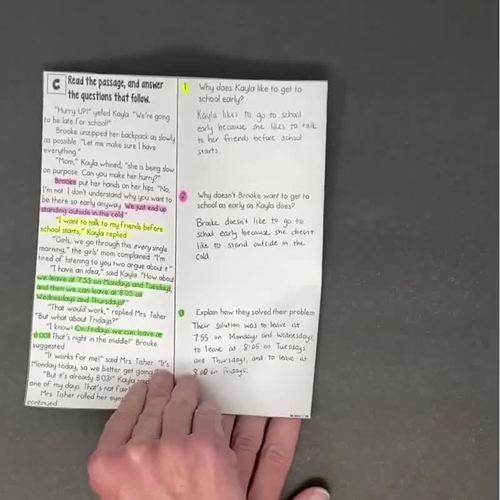 C Read the passage, and answer
the questions that follow.
"Hurry UP!" yelled Kayla "We're going
to be late for school!"
Brooke unzipped her backpack as slowly
as possible. "Let me make sure I have
everything."
"Mom," Kayla whined, "she is being slow
on purpose. Can you make her hurry?"
Brooke put her hands on her hips "No,
I'm not I don't understand why you want to
be there so early anyway. We just end up
standing outside in the cold"
"I want to talk to my friends before
school starts," Kayla replied
"Girls, we go through this every single
morning," the girls' mom complained "I'm
tired of listening to you two argue about it"
"I have an idea," said Kayla "How about
we leave at 7:55 on Mondays and Tuesdays,
and then we can leave at 8:05 on
Wednesdays and Thursdays?"
"That would work," replied Mrs Tisher
"But what about Fridays?"
"I know! On Fridays we can leave at
8:00! That's right in the middle!" Brooke
suggested
"It works for me!" said Mrs Tisher. "It's
Monday today, so we better get going
"But it's already 8:03!" Kayla
one of my days That's not fair
Mrs. Tisher rolled her eyes
continued
1 Why does Kayla like to get to
school early?
Kayla likes to go to school
early because she likes to talk
to her friends before school
starts.
2 Why doesn't Brooke want to get to
school as early as Kayla does?
Brooke doesn't like to go to
school early because she doesn't
like to stand outside in the
cold.
3 Explain how they solved their problem
Their solution was to leave at
7:55 on Mondays and Wednesdays,
to leave at 8:05 on Tuesdays
and Thursdays, and to leave at
8:00 on Fridays.